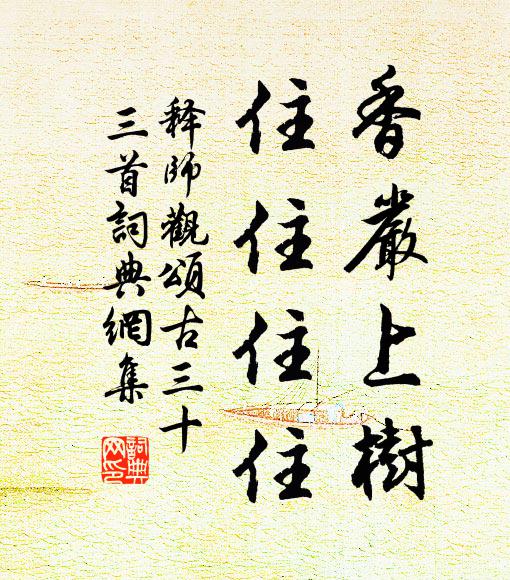 香嚴上樹
住住住住
释師觀頌古三十
三首詞典網集
詞典
网印